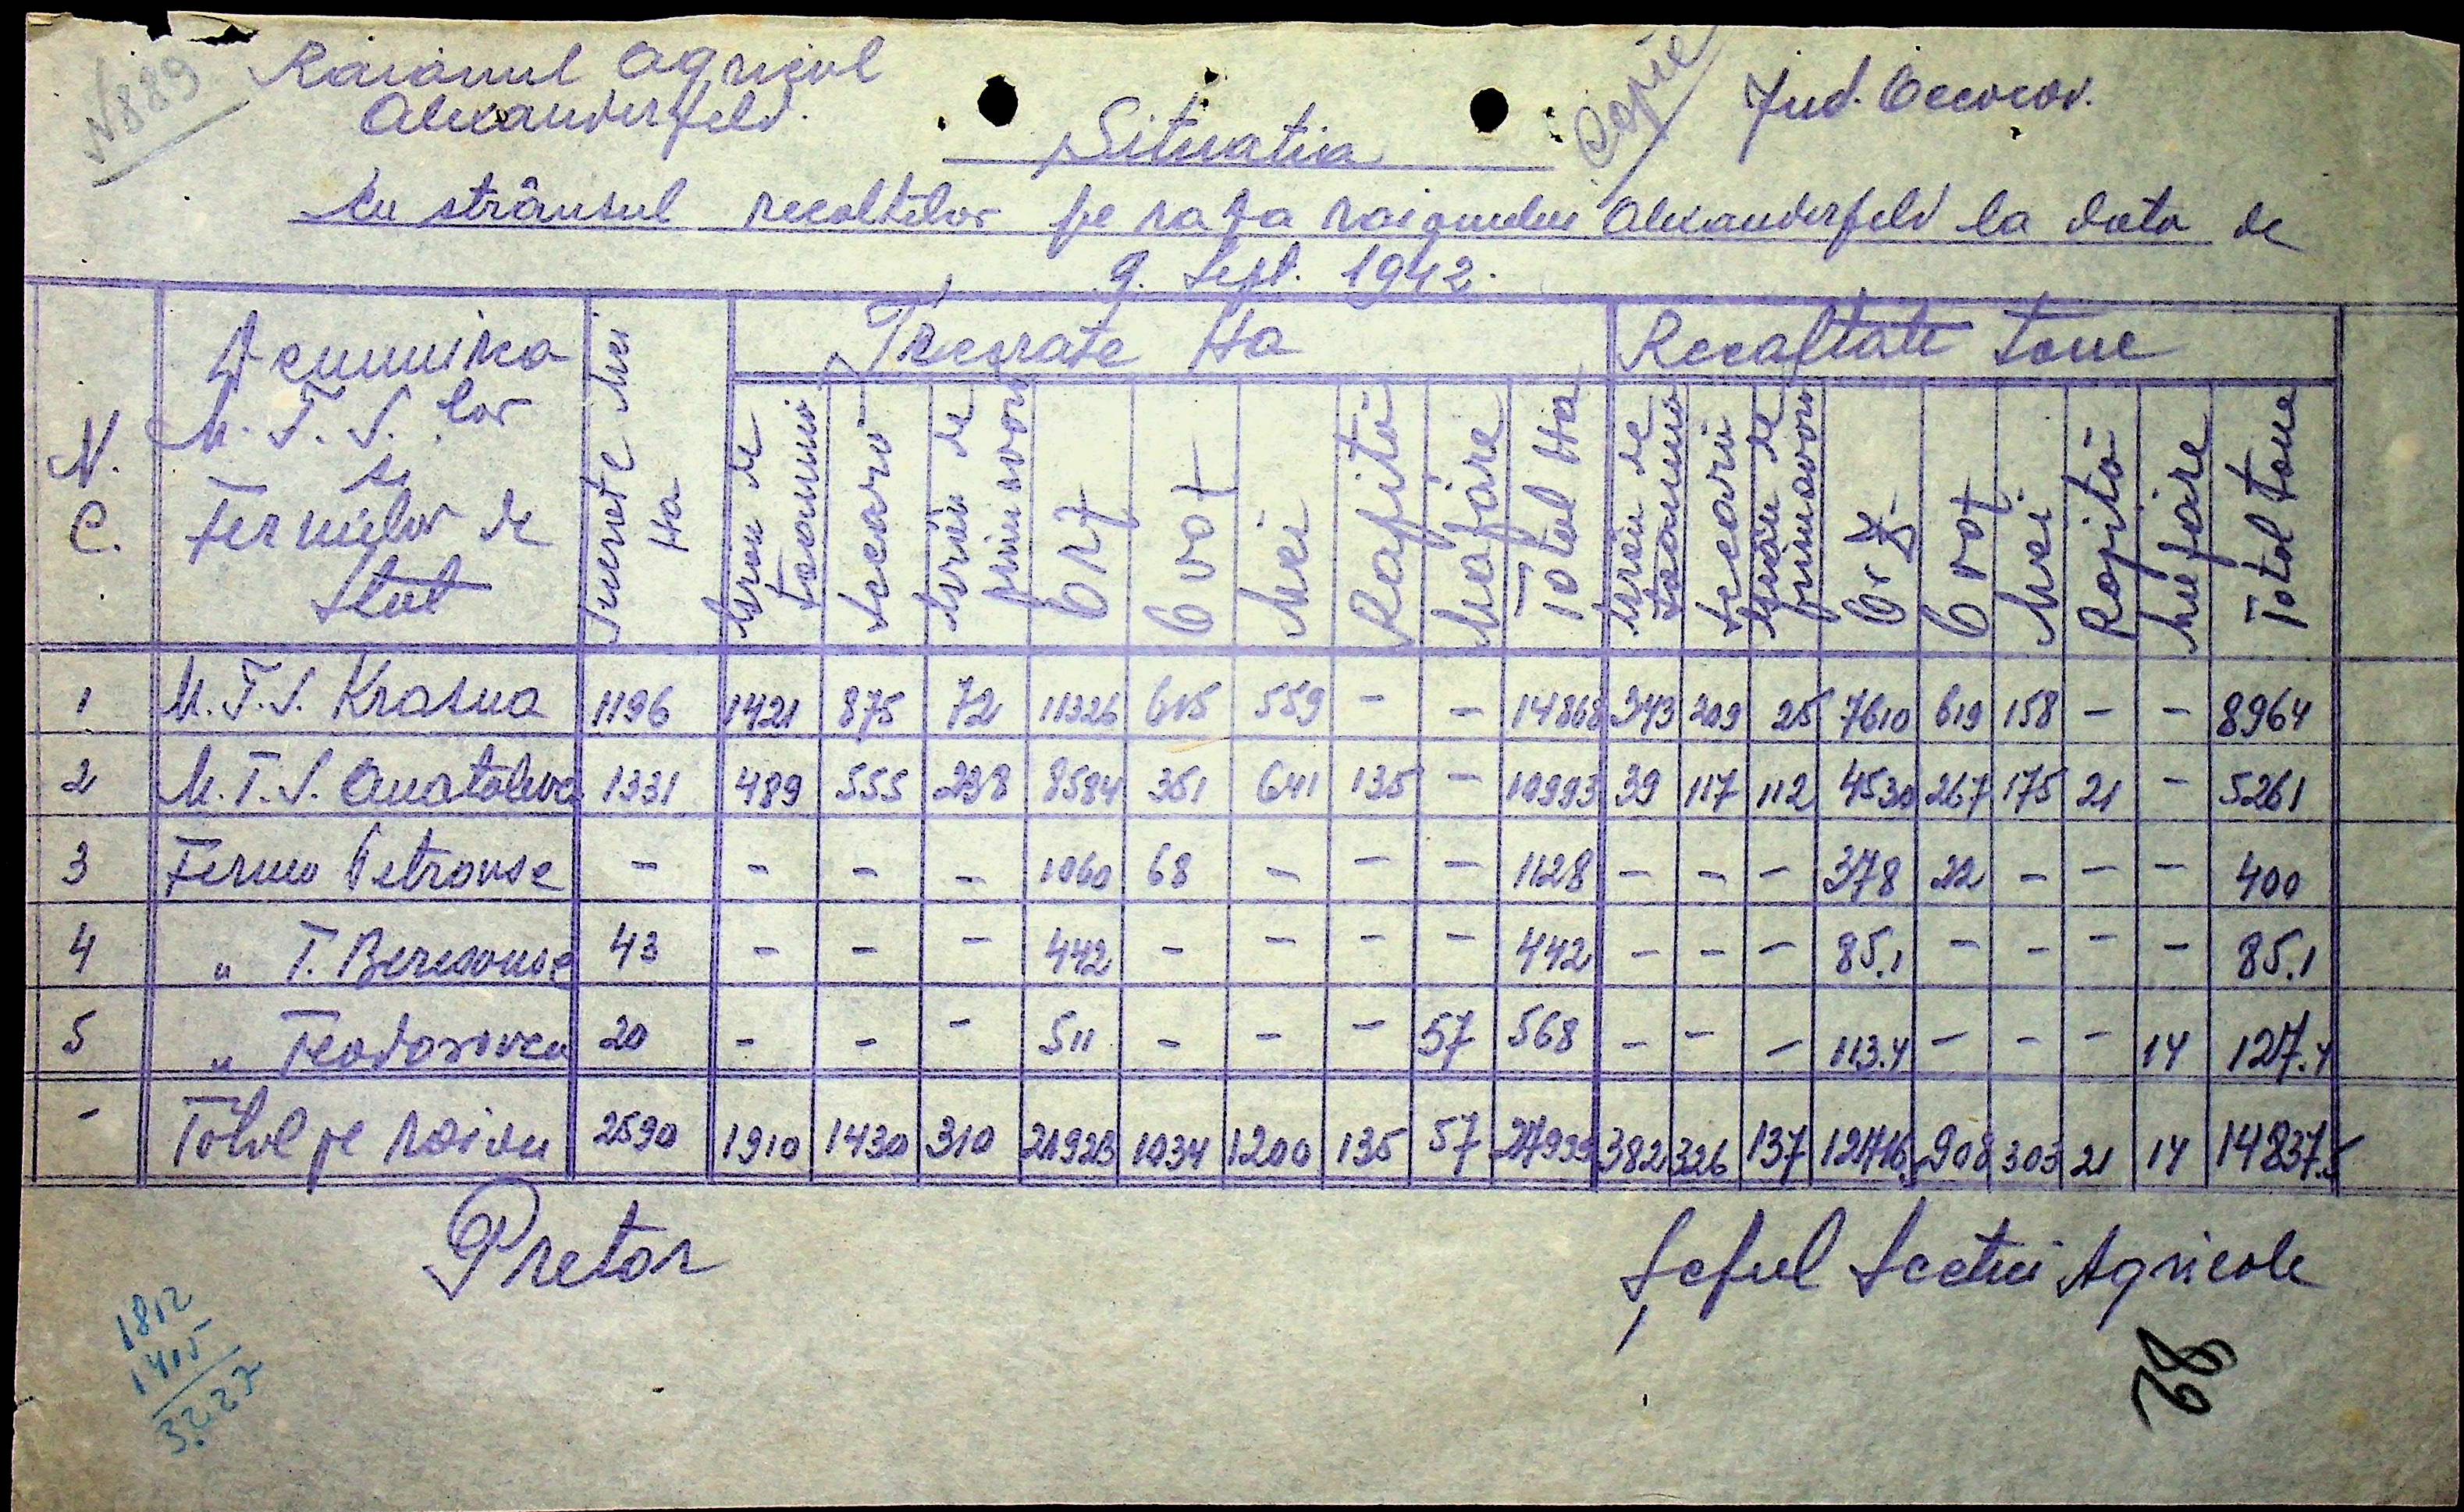 N 889
Raionul Agricol
Alexanderfeld.
Copie
Jud. Oceacov.
Situatia
cu strânsul recoltelor pe raza raionului Alexanderfeld la data de
9. Sept. 1942.
N. C. Denumirea M.T.S. lor si Fermelor de Stat Mei Ha Treerate Ha Recoltate tone
Grâu de toamnă Secară Grâu de primăvară Orz Ovăz Mei Rapiță Mazăre Total Ha Grâu de toamnă Secară Grâu de primăvară Orz Ovăz Mei Rapiță Mazăre Total tone
1 M.T.S. Krasna 1196 1421 875 72 11326 615 559 - - 14868 343 209 25 7610 619 158 - - 8964
2 M.T.S. Anatolievca 1331 489 555 238 8584 351 641 135 - 10993 39 117 112 4530 267 175 21 - 5261
3 Ferma Petrovsc - - - - 1060 68 - - - 1128 - - - 378 22 - - - 400
4 " T. Beresovsc 43 - - - 442 - - - - 442 - - - 85.1 - - - - 85.1
5 " Feodorovca 20 - - - 511 - - - 57 568 - - - 113.4 - - - 14 127.4
- Total pe raion 2590 1910 1430 310 21923 1034 1200 135 57 27999 382 326 137 12716.5 908 303 21 14 14837.5
Pretor
Șeful Sectiei Agricole
1812
1415
3227
68